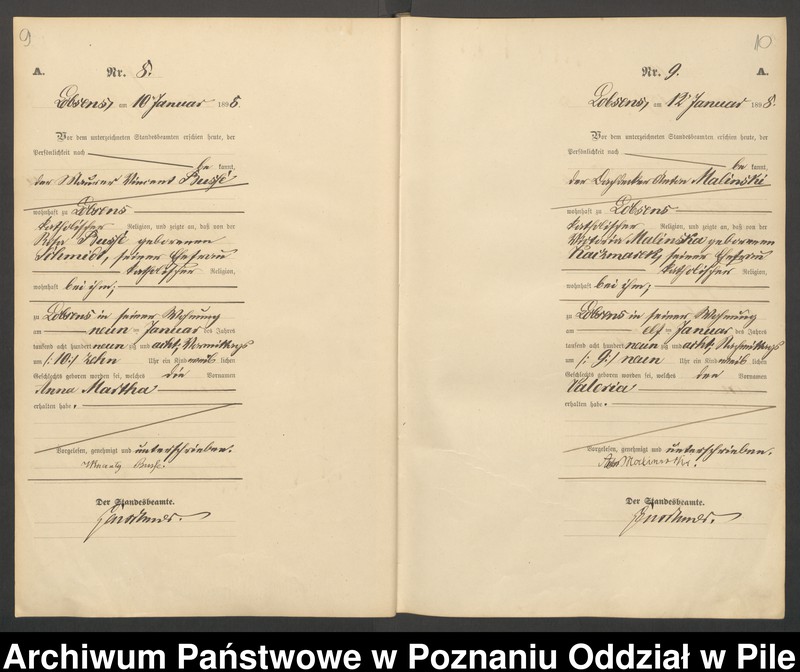 9
A. Nr. 8.
Lobsens, am 10 Januar 1898.
Vor dem unterzeichneten Standesbeamten erschien heute, der
Persönlichkeit nach
be kannt,
der Maurer Vincent Bussé
wohnhaft zu Lobsens
katholischer Religion, und zeigte an, daß von der
Rosa Bussé geborenen
Schmidt, seiner Ehefrau
katholischer Religion,
wohnhaft bei ihm;
zu Lobsens in seiner Wohnung
am neun ten Januar des Jahres
tausend acht hundert neunzig und acht, Vormittags
um /:10:/ zehn Uhr ein Kind weib lichen
Geschlechts geboren worden sei, welches die Vornamen
Anna Martha
erhalten habe.
Vorgelesen, genehmigt und unterschrieben.
Bussé.
Der Standesbeamte.
10
Nr. 9. A.
Lobsens, am 12 Januar 1898.
Vor dem unterzeichneten Standesbeamten erschien heute, der
Persönlichkeit nach
be kannt,
der Dachdecker Anton Malinski
wohnhaft zu Lobsens
katholischer Religion, und zeigte an, daß von der
Victoria Malinska geborenen
Kaczmarek, seiner Ehefrau
katholischer Religion,
wohnhaft bei ihm;
zu Lobsens in seiner Wohnung
am elf ten Januar des Jahres
tausend acht hundert neunzig und acht, Nachmittags
um /:9:/ neun Uhr ein Kind weib lichen
Geschlechts geboren worden sei, welches den Vornamen
Valeria
erhalten habe.
Vorgelesen, genehmigt und unterschrieben.
Anton Malinowski.
Der Standesbeamte.
Archiwum Państwowe w Poznaniu Oddział w Pile